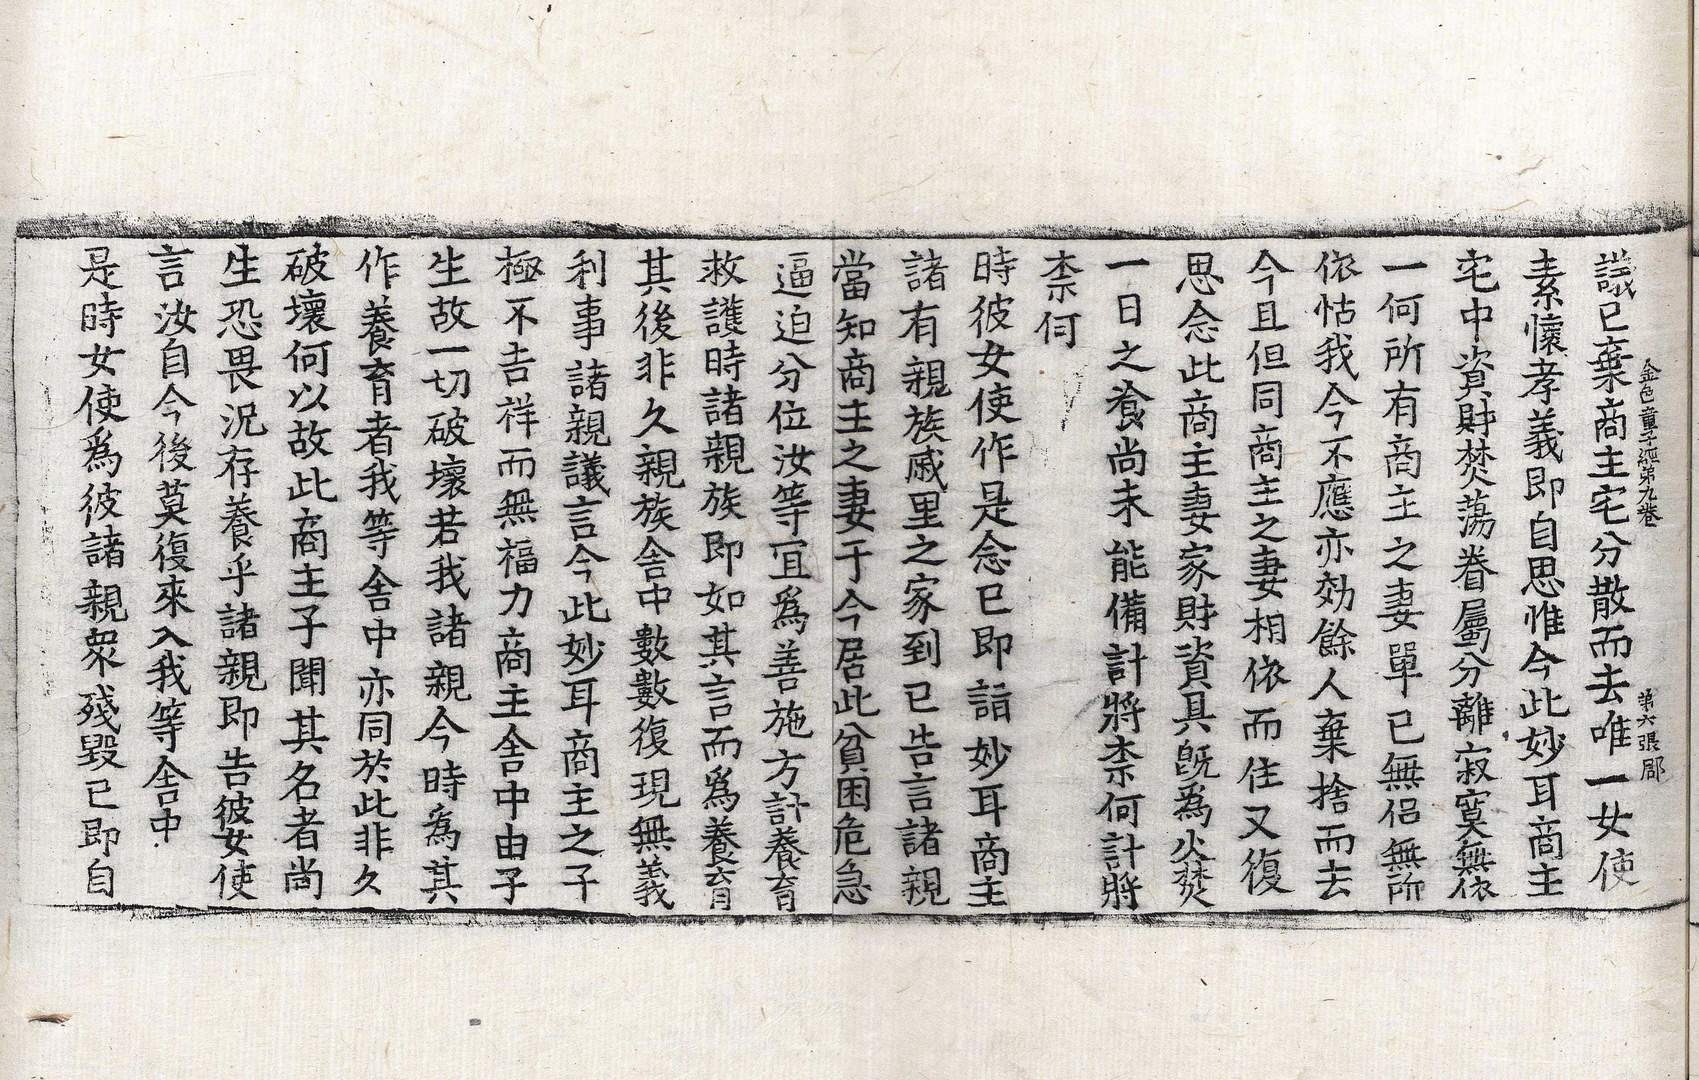 金色童子經第九卷　第六張　郡
議已棄商主宅分散而去唯一女使
素懷孝義即自思惟今此妙耳商主
宅中資財焚蕩眷屬分離寂寞無依
一何所有商主之妻單已無侶無所
依怙我今不應亦効餘人棄捨而去
今且但同商主之妻相依而住又復
思念此商主妻家財資具旣爲火焚
一日之飡尚未能備計將柰何計將
柰何
時彼女使作是念已即詣妙耳商主
諸有親族戚里之家到已告言諸親
當知商主之妻于今居此貧困危急
逼迫分位汝等宜爲善施方計養育
救護時諸親族即如其言而爲養育
其後非久親族舍中數數復現無義
利事諸親議言今此妙耳商主之子
極不吉祥而無福力商主舍中由子
生故一切破壞若我諸親今時爲其
作養育者我等舍中亦同於此非久
破壞何以故此商主子聞其名者尚
生恐畏況存養乎諸親即告彼女使
言汝自今後莫復來入我等舍中
是時女使爲彼諸親衆殘毀已即自